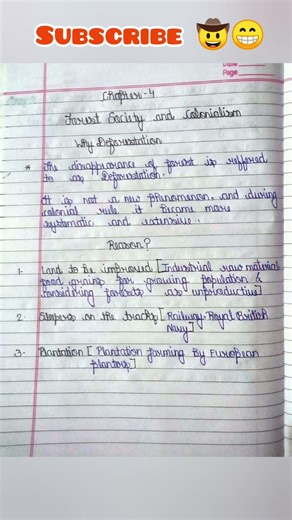 SUBSCRIBE 🤠😁
Date
Page
Chapter-4
Forest Society and Colonialism
Why Deforestation
* The disappearance of forest is reffered
to as Deforestation.
It is not a new phenomenon, and during
colonial rule it became more
systematic and extensive.
Reason?
1. Land to be improved [Industrial raw material
food grains for growing population &
considering forests as unproductive]
2- Sleepers on the tracks [Railway-Royal British
Navy]
3- Plantation [Plantation farming By European
planters]